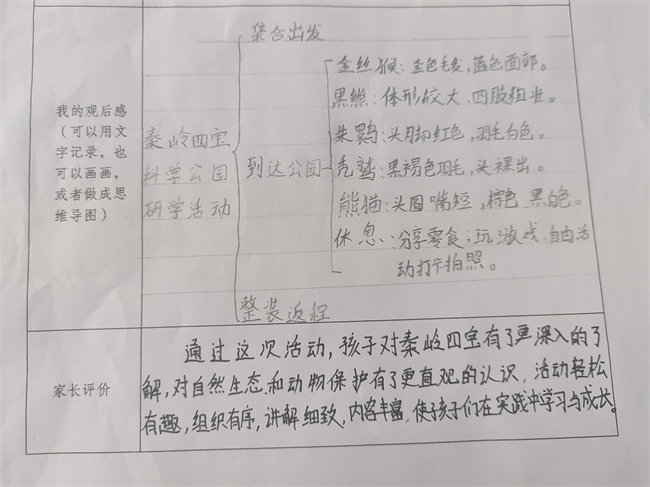 集合出发
金丝猴：金色毛发，蓝色面部。
黑熊：体形较大，四肢粗壮。
朱鹮：头脚红色，羽毛白色。
秃鹫：黑褐色羽毛，头裸出。
熊猫：头圆嘴短，棕色、黑白色。
休息：分享零食，玩游戏，自由活
动打卡拍照。
到达公园
整装返程
秦岭四宝
科学公园
研学活动
我的观后感
（可以用文
字记录，也
可以画画，
或者做成思
维导图）
家长评价
通过这次活动，孩子对秦岭四宝有了更深入的了
解，对自然生态和动物保护有了更直观的认识，活动轻松
有趣，组织有序，讲解细致，内容丰富，使孩子们在实践中学习与成长。